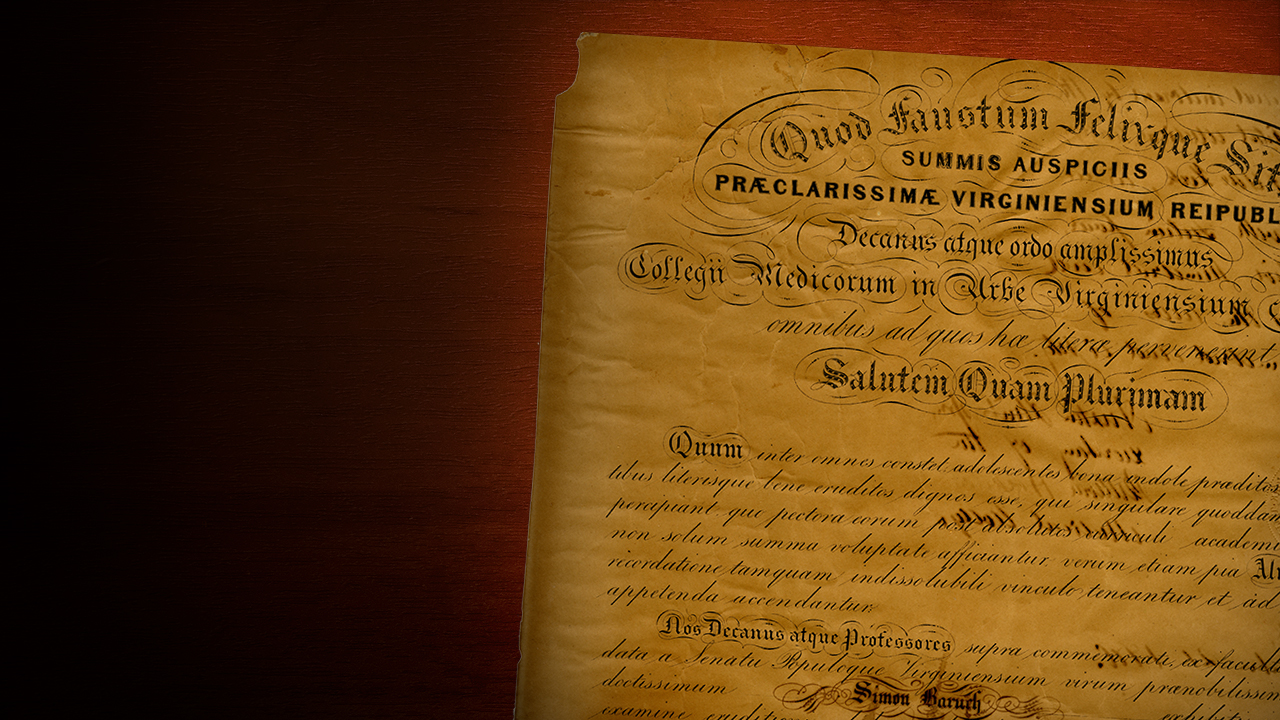 Quod Faustum Felixque Sit
SUMMIS AUSPICIIS
PRÆCLARISSIMÆ VIRGINIENSIUM REIPUBL
Decanus atque ordo amplissimus
Collegii Medicorum in Urbe Virginiensium
omnibus ad quos hæ literæ pervenerint
Salutem Quam Plurimam
Quum inter omnes constet adolescentes bona indole præditos
tibus literisque bene eruditos dignos esse, qui singulare quoddam
percipiant quo pectora eorum post absolutos curriculi academi
non solum summa voluptate afficiantur verum etiam pia Al
recordatione tamquam indissolubili vinculo teneantur et ad
appetenda accendantur
Nos Decanus atque Professores supra commemorati, ex facult
data a Senatu Populoque Virginiensium virum prænobilissim
doctissimum Simon Baruch
examine